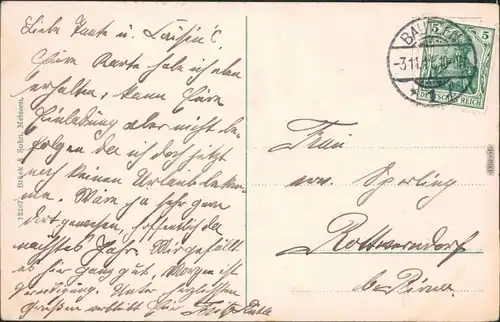 Liebe Tante u. Cousin C.
Eure Karte hab ich eben
erhalten, kann Eure
Einladung aber nicht be-
folgen da ich doch jetzt
noch keinen Urlaub bekom-
me. Wäre ja sehr gern
dort gewesen, hoffentlich da
nächstes Jahr. Mir gefällt
es hier ganz gut, Morgen ist
Vereidigung. Unter herzlichen
Grüßen verbleibt Euer
12367 Brück & Sohn, Meissen.
BAUTZEN
-3.11.11
5 5
DEUTSCHES REICH
Frau
verw. Sperling
Rottwerndorf
bei Pirna.